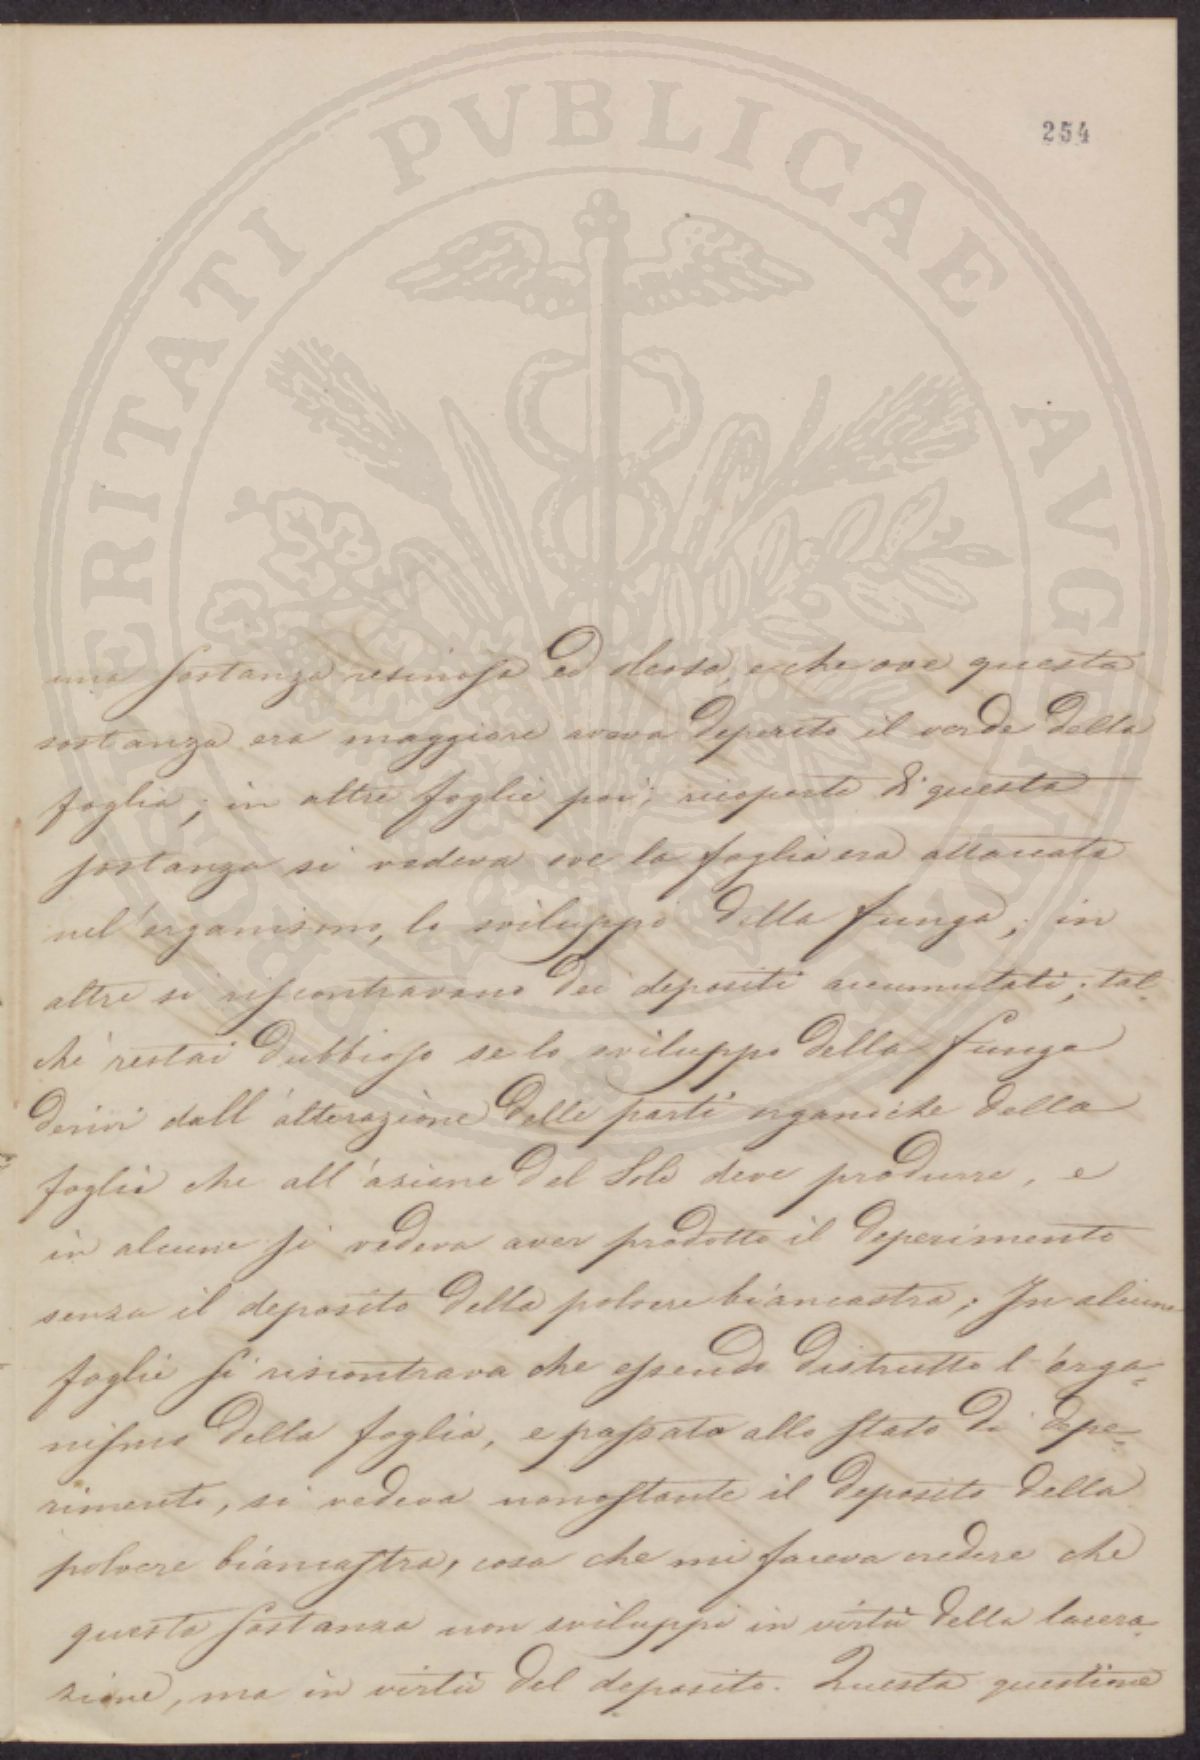 254
PROSPERITATI PVBLICAE AVGENDAE
una sostanza resinosa ed oleosa, e che ove questa
sostanza era maggiore aveva deperito il verde della
foglia; in altre foglie poi, ricoperte di questa
sostanza si vedeva ove la foglia era attaccata
nel'organismo, lo sviluppo della funga; in
altre si riscontravano dei depositi accumulati; tal-
chè restai dubbioso se lo sviluppo della funga
derivi dall'alterazione delle parti organiche della
foglia che all'azione del Sole deve produrre, e
in alcune si vedeva aver prodotto il deperimento
senza il deposito della polvere biancastra; In alcune
foglie si riscontrava che essendo distrutto l'orga-
nismo della foglia, e passata allo stato di depe-
rimento, si vedeva nonostante il deposito della
polvere biancastra, cosa che mi faceva credere che
questa sostanza non sviluppi in virtù della lacera-
zione, ma in virtù del deposito. Questa questione